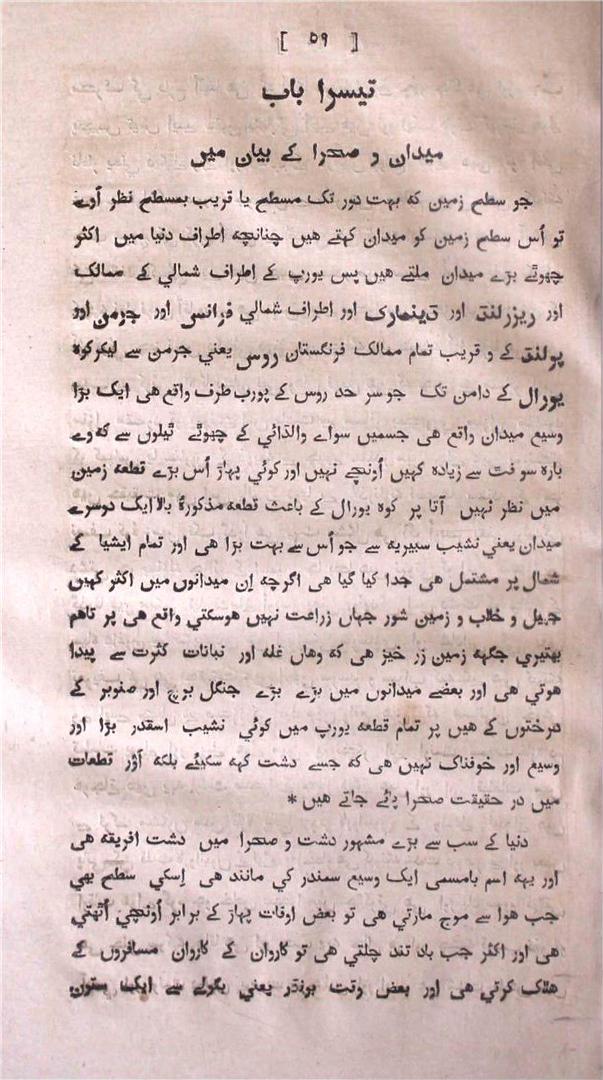 [ ٥٩ ]
تيسرا باب
ميدان و صحرا كے بيان ميں
جو سطح زمين كه بہت دور تک مسطح يا قريب بمسطح نظر آوے
تو اُس سطح زمين كو ميدان كہتے هيں چنانچه اطراف دنيا ميں اكثر
چهوٹے بڑے ميدان ملتے هيں پس يورپ كے اِطراف شمالي كے ممالک
اور ريزرلنڈ اور ڈينمارک اور اطراف شمالي فرانس اور جرمن اور
پولنڈ كے و قريب تمام ممالک فرنگستان روس يعني جرمن سے ليكر كوه
يورال كے دامن تک جو سر حد روس كے پورب طرف واقع هى ايک بڑا
وسيع ميدان واقع هى جسميں سواے والڈائي كے چهوٹے ٹيلوں سے كه وے
باره سو فٹ سے زياده كہيں اُونچے نہيں اور كوئي پہاڑ اُس بڑے قطعه زمين
ميں نظر نہيں آتا پر كوه يورال كے باعث قطعه مذكورۀ بالا ايک دوسرے
ميدان يعني نشيب سبيريه سے جو اُس سے بہت بڑا هى اور تمام ايشيا كے
شمال پر مشتمل هى جدا كيا گيا هى اگرچه اِن ميدانوں ميں اكثر كہيں
جهيل و خلاب و زمين شور جہاں زراعت نہيں هوسكتي واقع هى پر تاهم
بهتيري جگہه زمين زر خيز هى كه وهاں غله اور نباتات كثرت سے پيدا
هوتي هى اور بعضے ميدانوں ميں بڑے بڑے جنگل برچ اور صنوبر كے
درختوں كے هيں پر تمام قطعه يورپ ميں كوئي نشيب اسقدر بڑا اور
وسيع اور خوفناک نہيں هى كه جسے دشت كہه سكيئے بلكه اَوْر قطعات
ميں در حقيقت صحرا پائے جاتے هيں *
دنيا كے سب سے بڑے مشہور دشت و صحرا ميں دشت افريقه هى
اور يہه اسم بامسمى ايک وسيع سمندر كي مانند هى اِسكي سطح بهي
جب هوا سے موج مارتي هى تو بعض اوقات پہاڑ كے برابر اُونچي اُٹهتي
هى اور اكثر جب باد تند چلتي هى تو كاروان كے كاروان مسافروں كے
هلاک كرتي هى اور بعض وقت بونڈر يعني بگولے سے ايک ستون